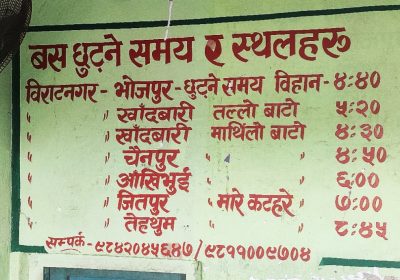 बस छुट्ने समय र स्थलहरू
विराटनगर - भोजपुर - छुट्ने समय विहान - ४:४०
" खाँदबारी तल्लो बाटो ५:२०
" खाँदबारी माथिलो बाटो ४:३०
" चैनपुर " ४:५०
" आँखिभुई " ६:००
" जितपुर " मारे कटहरे " ७:००
" तेह्रथुम ८:४५
सम्पर्क - ९८४२०४५६४७ / ९८११००९७०४